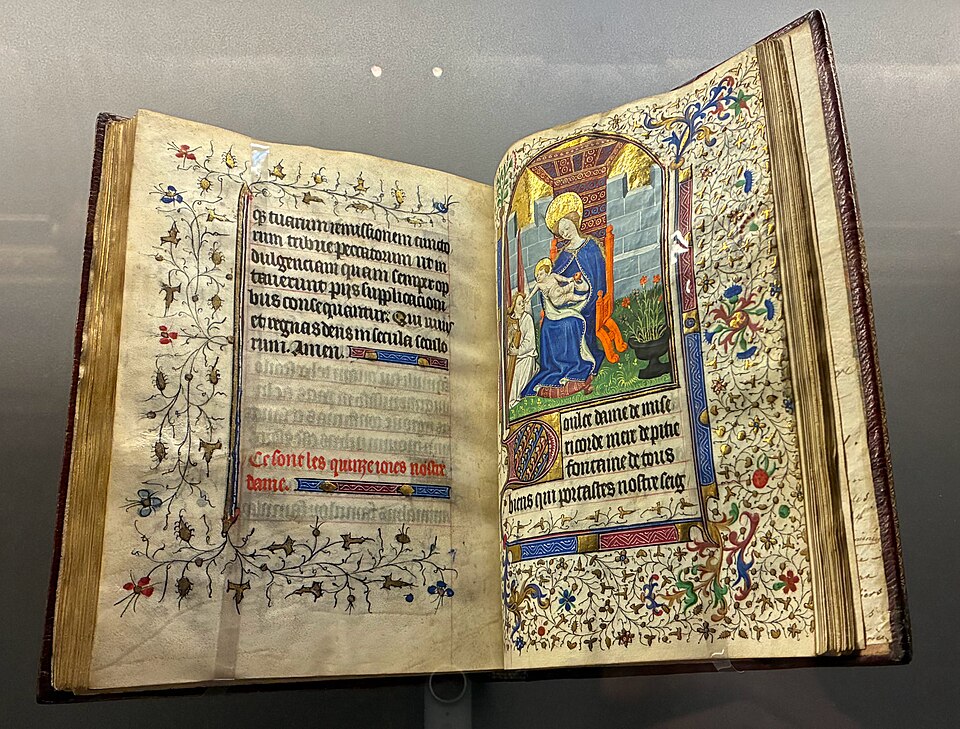 tuarum remissionem cuncto
rum tribue peccatorum ut in
dulgenciam quam semper op
tauerunt pijs supplicacioni
bus consequantur. Qui uiuis
et regnas deus in secula seculo
rum. Amen.
Ce sont les quinze ioies nostre
dame.
Doulce dame de mise
ricorde mere de pitie
fontaine de tous
biens qui portastes nostre seig